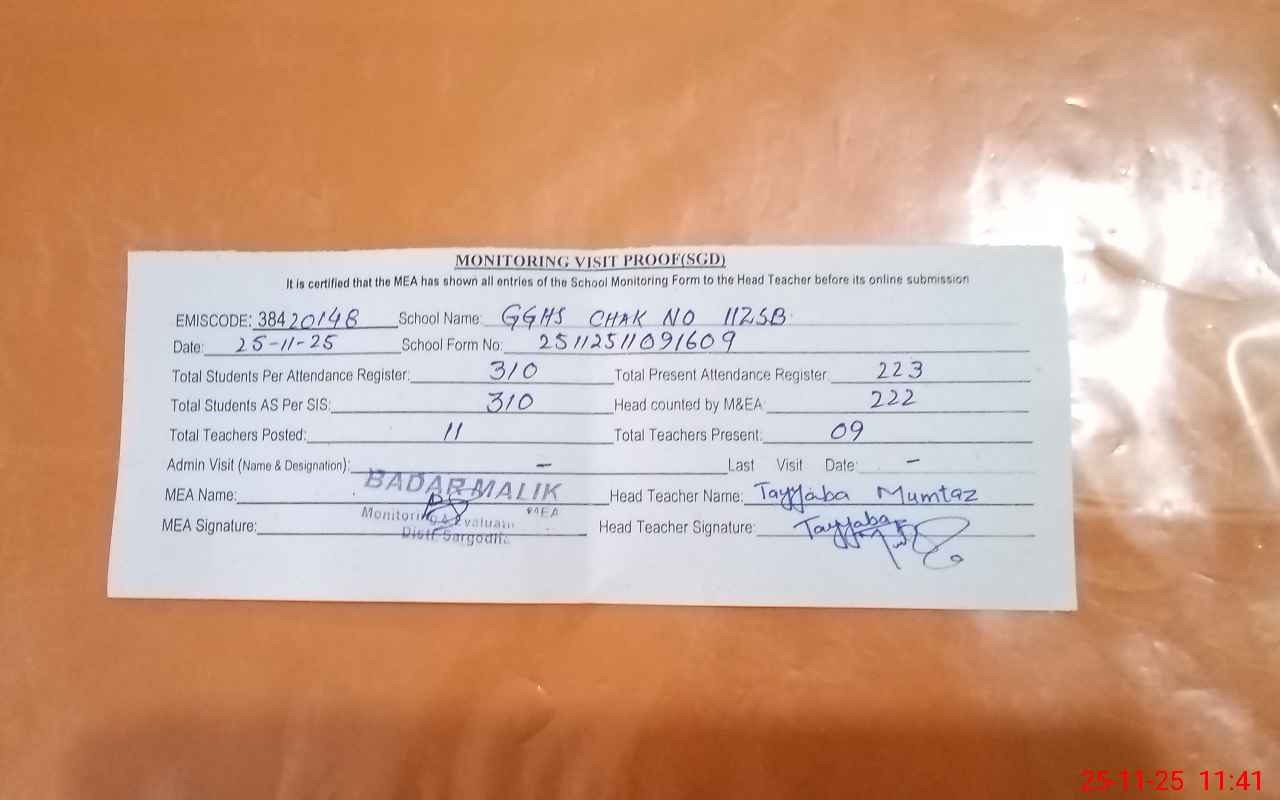 MONITORING VISIT PROOF(SGD)
It is certified that the MEA has shown all entries of the School Monitoring Form to the Head Teacher before its online submission
EMISCODE: 38420148 School Name: GGHS CHAK NO 112SB
Date: 25-11-25 School Form No: 25112511091609
Total Students Per Attendance Register: 310 Total Present Attendance Register 223
Total Students AS Per SIS: 310 Head counted by M&EA: 222
Total Teachers Posted: 11 Total Teachers Present: 09
Admin Visit (Name & Designation): – Last Visit Date: –
MEA Name: BADAR MALIK Head Teacher Name: Tayyaba Mumtaz
MEA
Monitoring & Evaluati
MEA Signature: Head Teacher Signature: Tayyaba
Distt. Sargodha
25-11-25 11:41